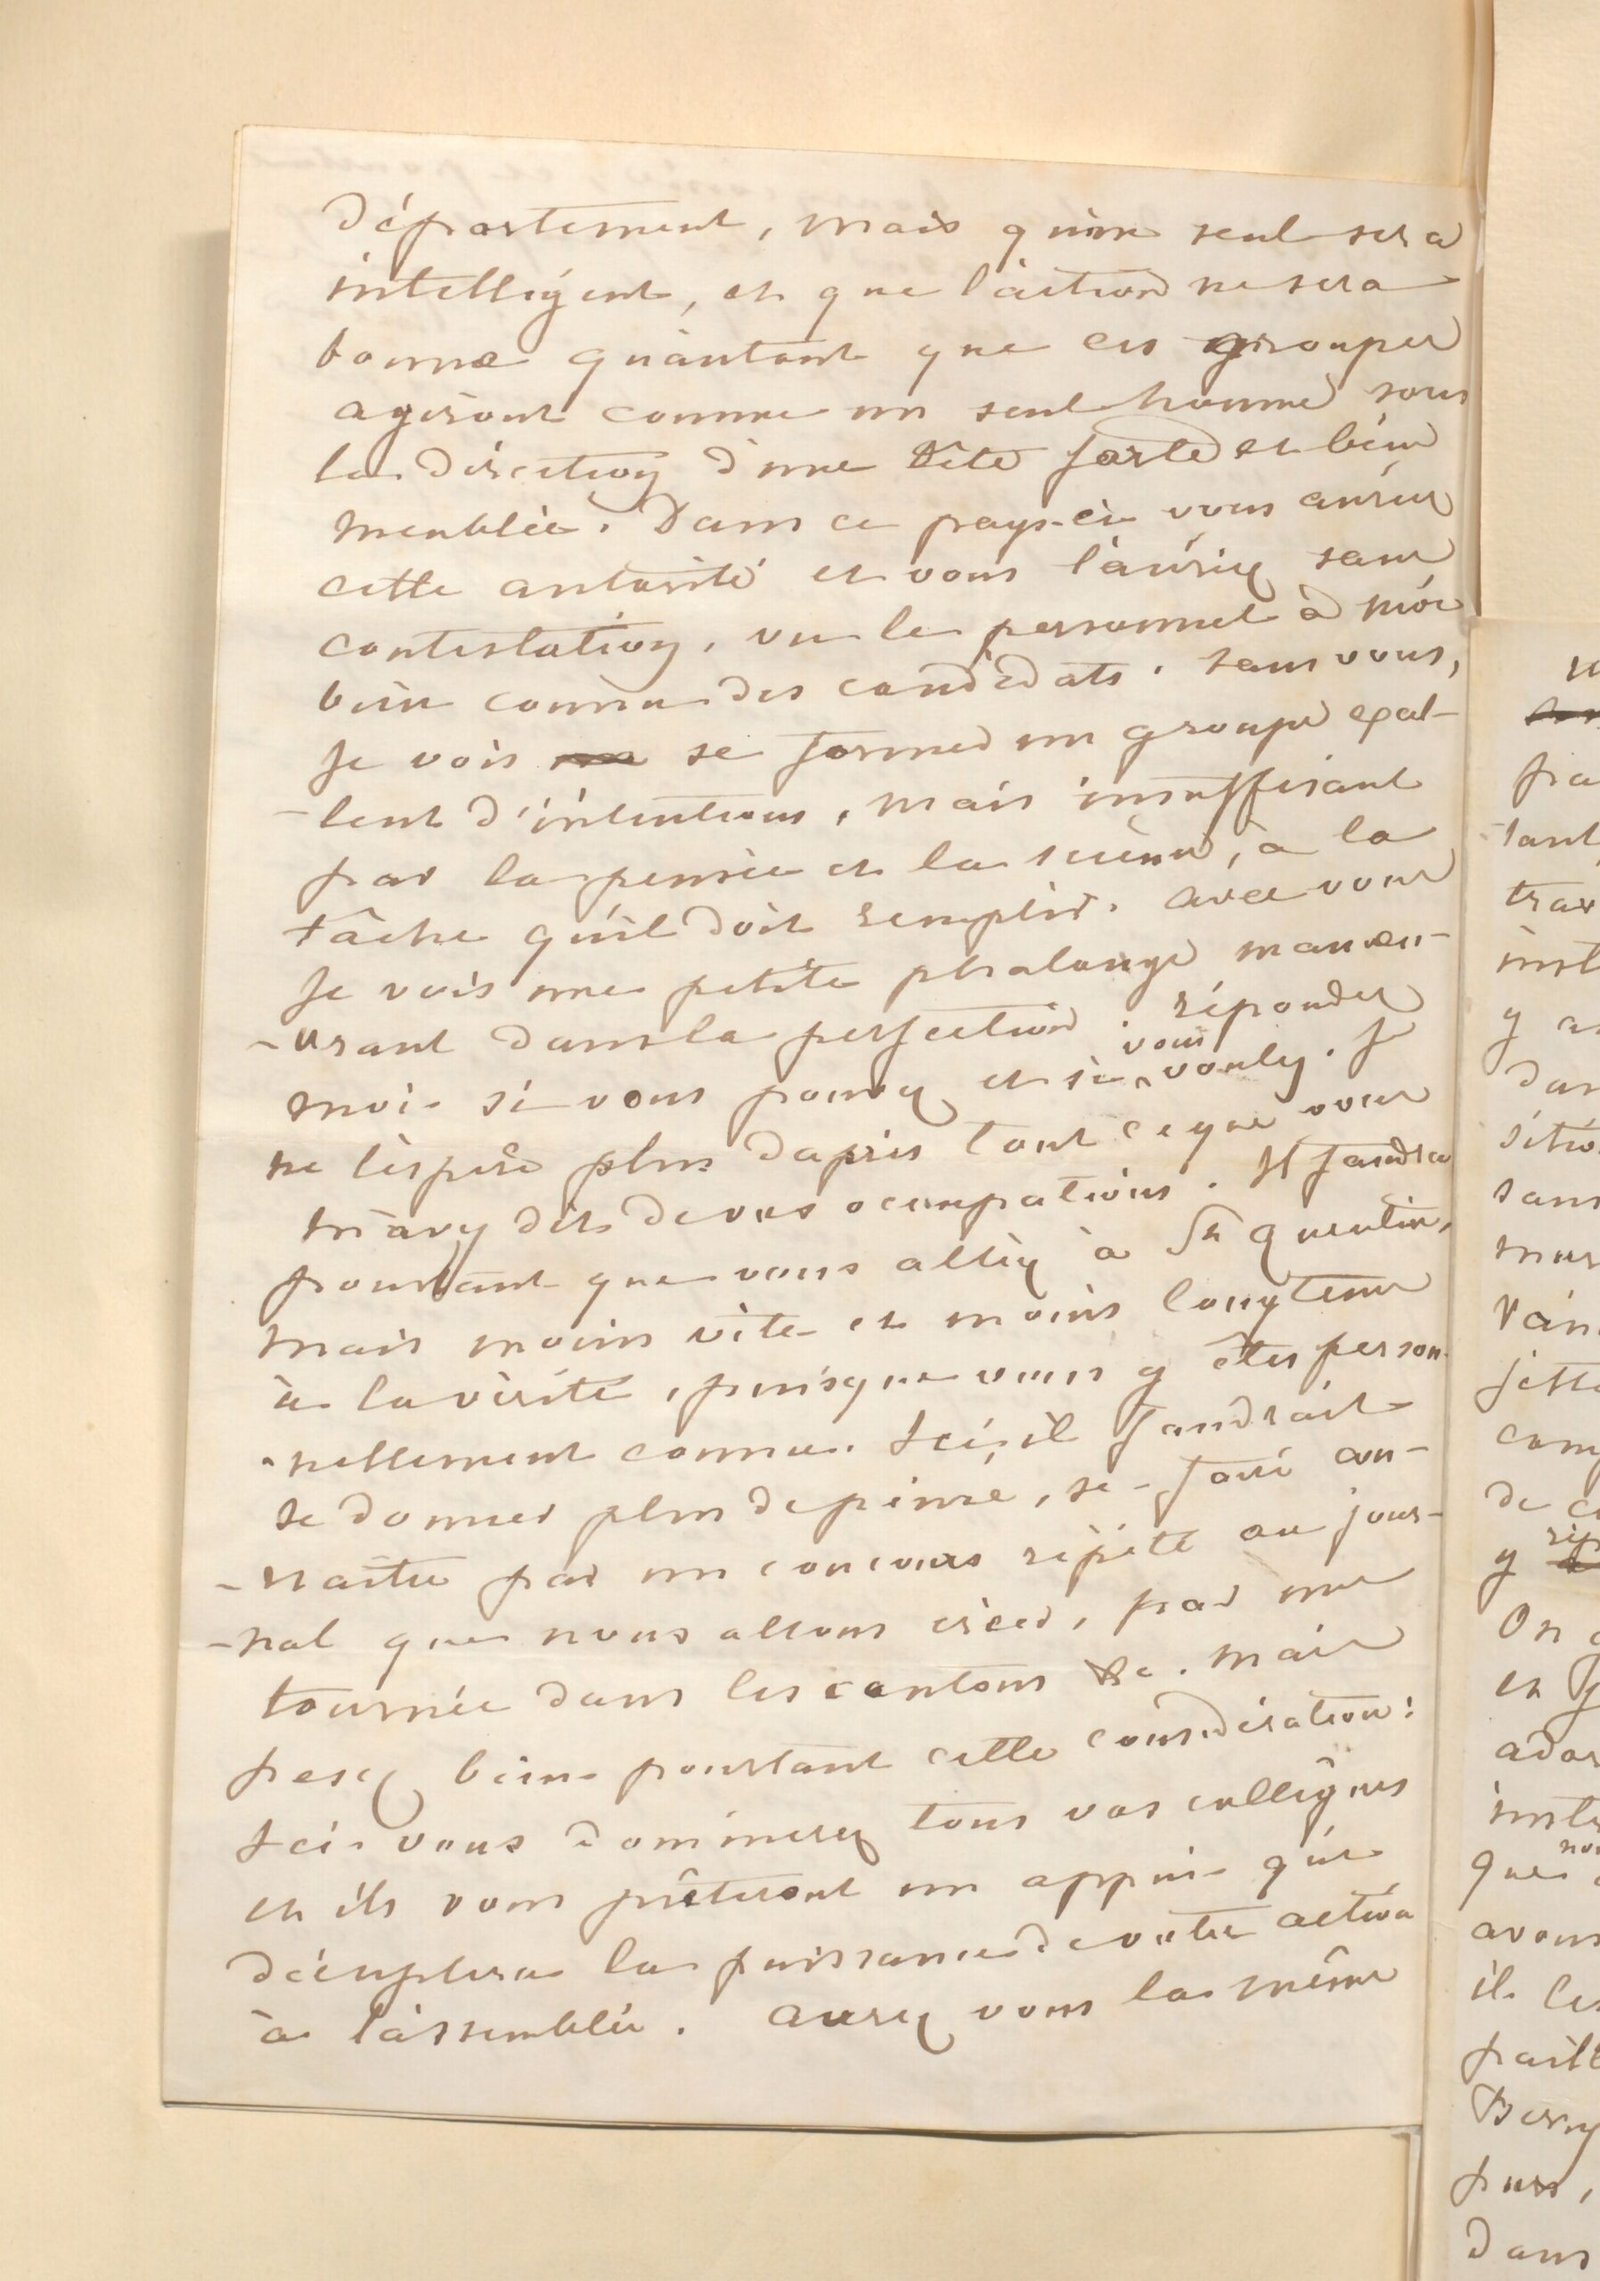 département, mais qu'un seul sera
intelligent, et que l'action ne sera
bonne qu'autant que ces groupes
agiront comme un seul homme sous
la direction d'une tête forte et bien
meublée. Dans ce pays-ci vous auriez
cette autorité et vous l'auriez sans
contestation, vu le personnel à moi
bien connu des candidats. Sans vous,
je vois se former un groupe exal-
-lent d'intentions, mais insuffisant
par la pensée et la science, à la
tâche qu'il doit remplir. avec vous
je vois une petite phalange manœu-
-vrant dans la perfection. répondez
moi si vous pouvez et si vous voulez. Je
ne l'espère plus d'après tout ce que vous
m'avez dit de vos occupations. Il faudra
pourtant que vous alliez à St Quentin,
mais moins vite et moins longtems
à la vérité, puisque vous y êtes person-
-nellement connu. Ici, il faudrait
se donner plus de peine, se faire con-
-naitre par un concours répété au jour-
-nal que nous allons créer, par une
tournée dans les cantons &c. mais
pesez bien pourtant cette considération:
Ici vous dominerez tous vos collègues
et ils vous prêteront un appui qui
décuplera la puissance de votre action
à l'assemblée. aurez vous la même
fra
tant
trav
inst
y a
dan
sitio
sans
mur
jette
com
de c
y rép
On
et
ador
inst
que nou
avons
il les
Berry
dans